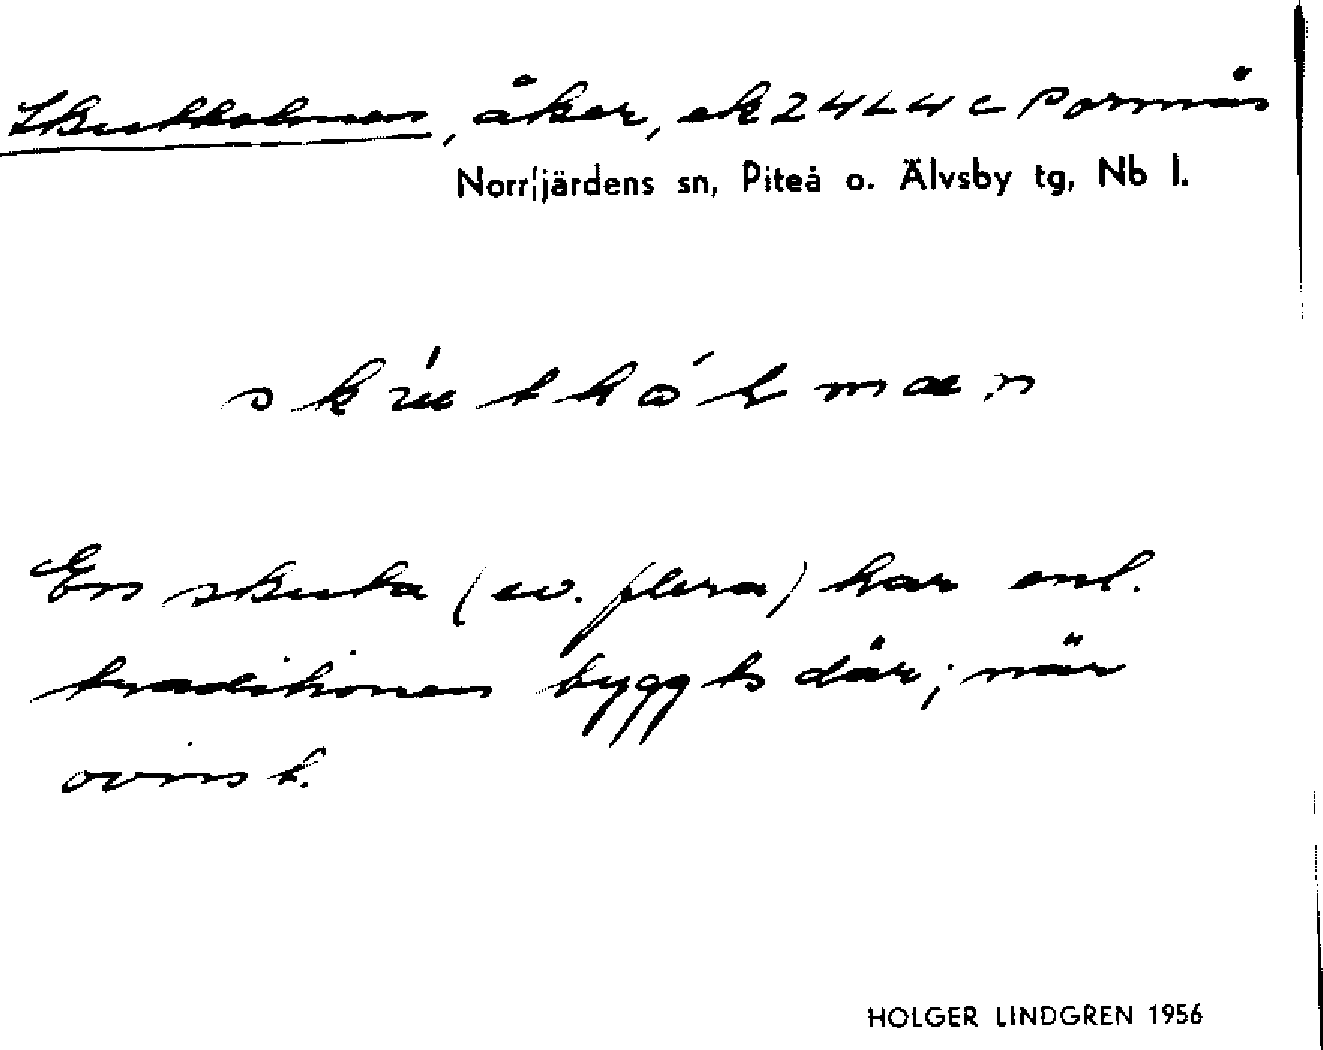 Skutholmen, åker, ek 24L4c Pornäs
Norrfjärdens sn, Piteå o. Älvsby tg, Nb l.
En skuta (ev. flera) har enl.
traditionen byggts där; när
ovisst.
HOLGER LINDGREN 1956